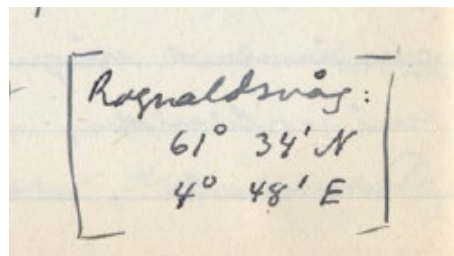 Rognaldsvåg:
61° 34' N
4° 48' E